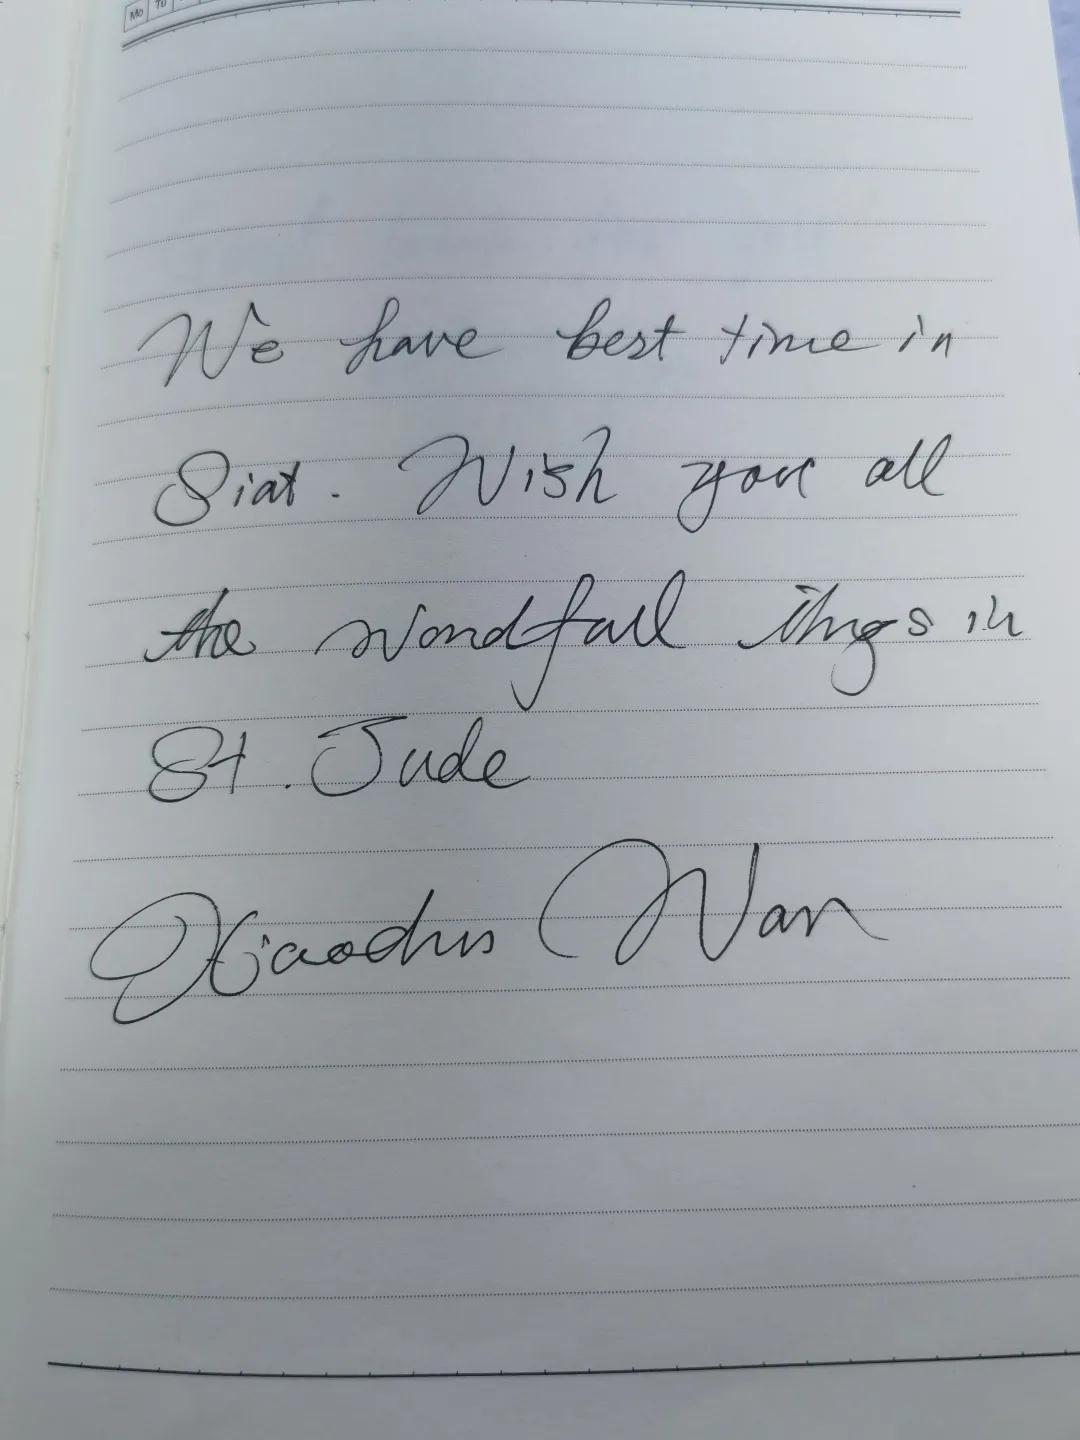 Mo Tu
We have best time in
Siat. Wish you all
the wondfull things in
St. Jude
Wan